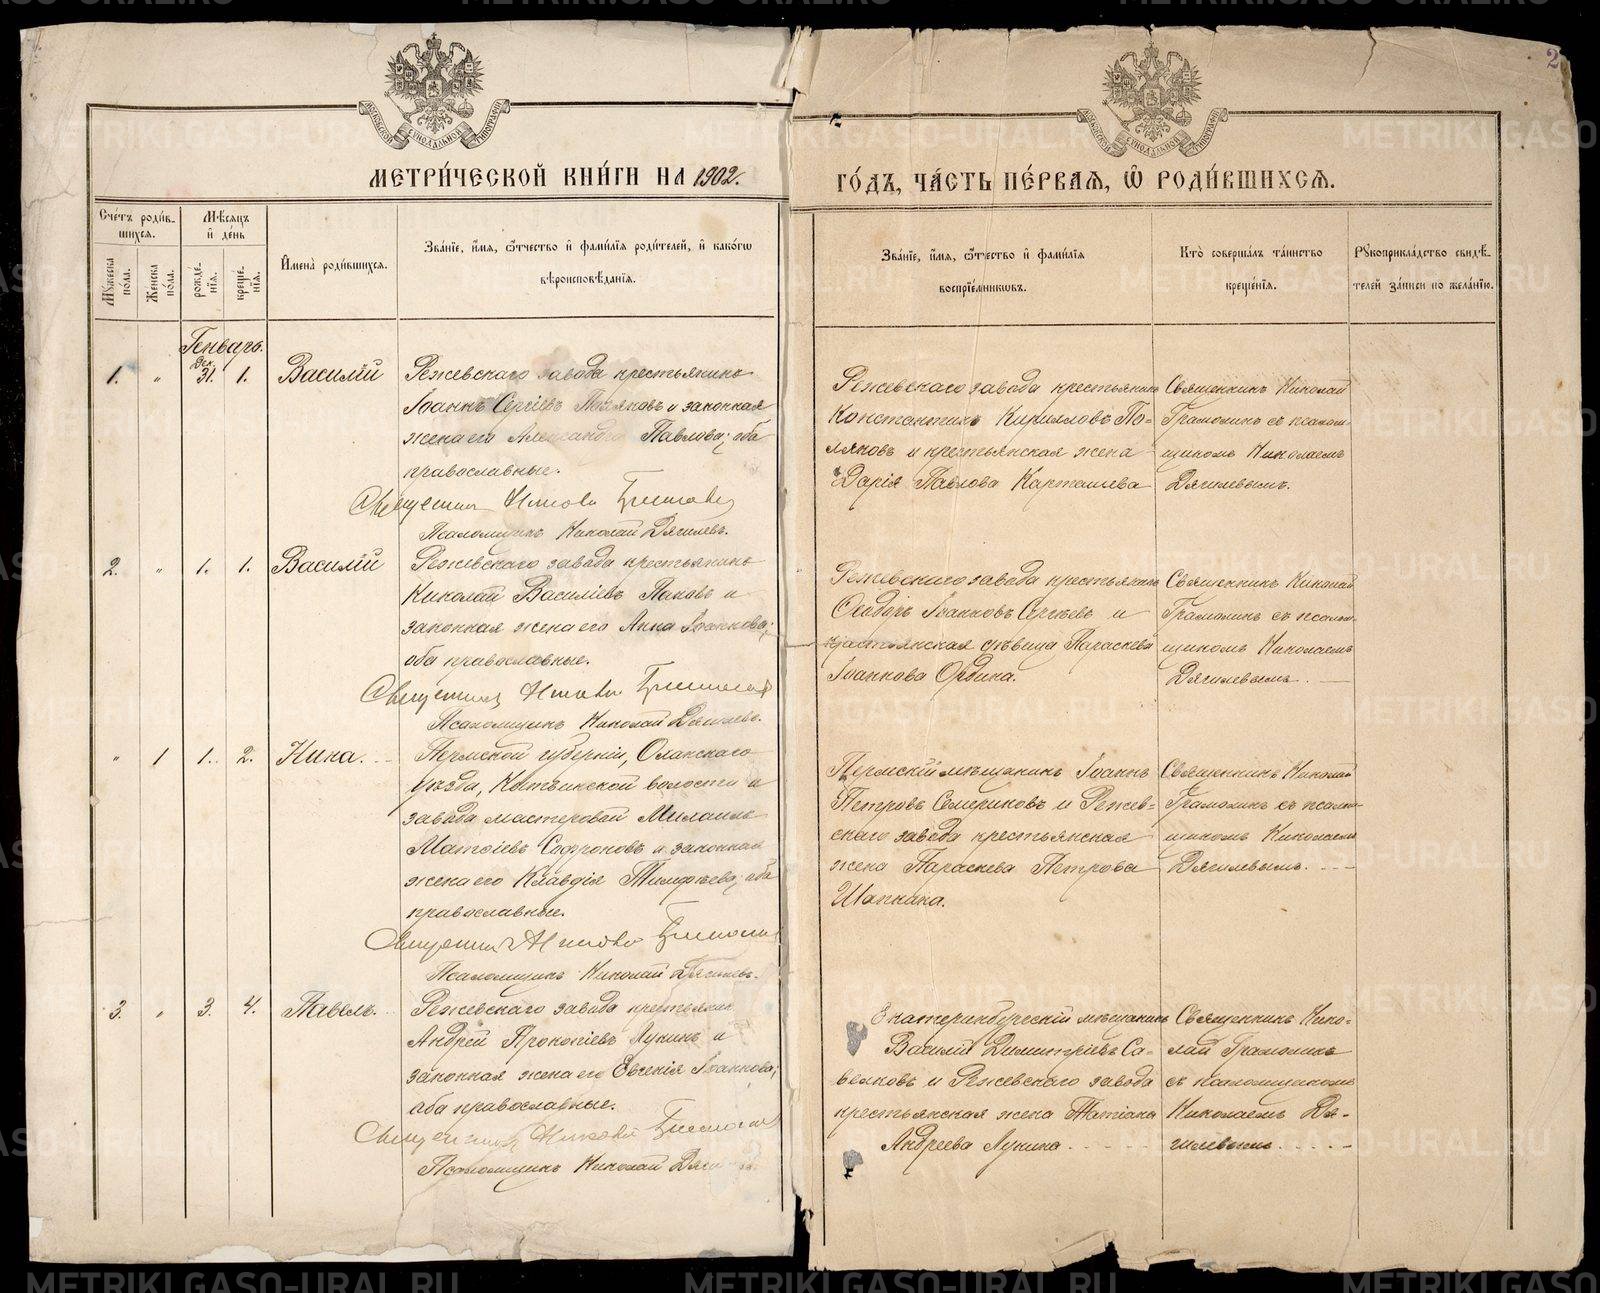 METRIKI.GASO-URAL.RU
2
МОСКОВСКОЙ СѴНОДАЛЬНОЙ ТИПОГРАФІИ
МОСКОВСКОЙ СѴНОДАЛЬНОЙ ТИПОГРАФІИ
МЕТРИ́ЧЕСКОЙ КНИ́ГИ НА 1902.
ГО́ДЪ, ЧА́СТЬ ПЕ́РВАЯ, Ѡ҆ РОДИ́ВШИХСЯ.
Сче́тъ роди́в-
шихся.
Му́жеска по́ла.
Же́нска по́ла.
Мѣ́сяцъ и҆ де́нь
рожде́нїя.
креще́нїя.
И҆мена̀ роди́вшихся.
Зва́нїе, и҆́мя, ѻ҆́тчество и҆ фами́лїя роди́телей, и҆ како́гѡ
вѣроисповѣ́данїя.
Зва́нїе, и҆́мя, ѻ҆́тчество и҆ фами́лїя
воспрїе́мникѡвъ.
Кто̀ соверша́лъ та́инство
креще́нїя.
Рꙋкоприкла́дство свидѣ́-
телей за́писи по жела́нїю.
Генварь.
1. " Дек. 31. 1. Василій
Режевскаго завода крестьянинъ
Іоаннъ Сергіевъ и законная
жена его Александра Павлова; оба
православные.
Священникъ
Псаломщикъ Николай Дягилевъ.
Режевскаго завода крестьянинъ
Константинъ Кирилловъ По-
ляковъ и крестьянская жена
Дарія Павлова Карташева
Священникъ Николай
Грамолинъ съ псалом-
щикомъ Николаемъ
Дягилевымъ.
2. " 1. 1. Василій
Режевскаго завода крестьянинъ
Николай Василіевъ Пановъ и
законная жена его Анна Іоаннова;
оба православные.
Священникъ
Псаломщикъ Николай Дягилевъ.
Режевскаго завода крестьянинъ
Ѳеодоръ Іоанновъ Сергѣевъ и
крестьянская дѣвица Параскева
Іоаннова Ордина.
Священникъ Николай
Грамолинъ съ псалом-
щикомъ Николаемъ
Дягилевымъ.
" 1 1. 2. Нина.
Пермской губерніи, Оханскаго
уѣзда, Нытвинской волости и
завода мастеровой Михаилъ
Матѳіевъ Софроновъ и законная
жена его Клавдія Тимофѣева; оба
православные.
Священникъ
Псаломщикъ Николай Дягилевъ.
Пермскій мѣщанинъ Іоаннъ
Петровъ Семериковъ и Режев-
скаго завода крестьянская
жена Параскева Петрова
Шапкина.
Священникъ Николай
Грамолинъ съ псалом-
щикомъ Николаемъ
Дягилевымъ.
3. " 3. 4. Павелъ.
Режевскаго завода крестьянин
Андрей Прокопіевъ Лукинъ и
законная жена его Евгенія Іоаннова;
оба православные.
Священникъ
Псаломщикъ Николай
Екатеринбургскій мѣщанинъ
Василій Димитріевъ Са-
велковъ и Режевскаго завода
крестьянская жена Татіана
Андреева Лукина
Священникъ Нико-
лай Грамолинъ
съ псаломщикомъ
Николаемъ Дя-
гилевымъ